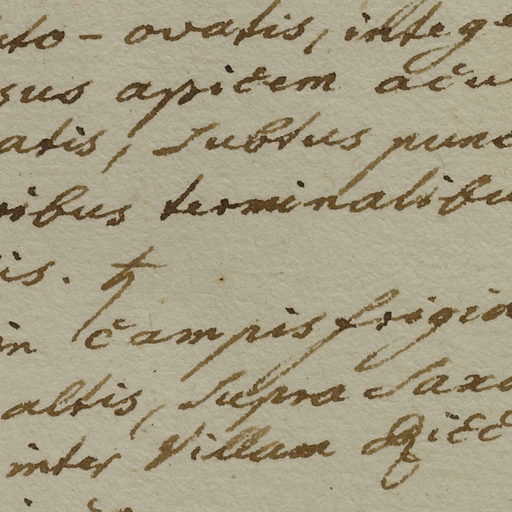 cto-ovatis, intege
sus apicem acu
atis, subtus punc
ribus terminalibu
is. ♄
in campis frigid
altis, supra saxo
inter Villam